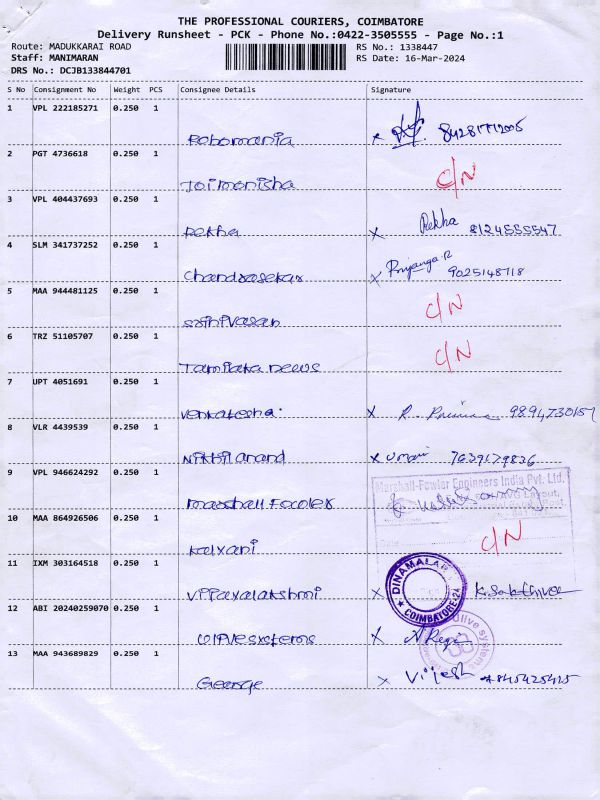 THE PROFESSIONAL COURIERS, COIMBATORE
Delivery Runsheet - PCK - Phone No.:0422-3505555 - Page No.:1
Route: MADUKKARAI ROAD RS No.: 1338447
Staff: MANIMARAN RS Date: 16-Mar-2024
DRS No.: DCJB133844701
S No Consignment No Weight PCS Consignee Details Signature
1 VPL 222185271 0.250 1
Robomania x
2 PGT 4736618 0.250 1
C/N
3 VPL 404437693 0.250 1
Rekha x Rekha 8124555547
4 SLM 341737252 0.250 1
Chandrasekar x Priyanga.R 9025148718
5 MAA 944481125 0.250 1
Srinivasan C/N
6 TRZ 51105707 0.250 1
Tamilaka news C/N
7 UPT 4051691 0.250 1
Venkatesha x R. 9894730157
8 VLR 4439539 0.250 1
Nikhil anand x Umari 7639179836
9 VPL 946624292 0.250 1
Marshall-Fowler Engineers India Pvt. Ltd.
Marshall Fowler
10 MAA 864926506 0.250 1
Date
Kalyani C/N
11 IXM 303164518 0.250 1
DINAMALAR
COIMBATORE-24
Vijayalakshmi x K. Sakthivel
12 ABI 20240259070 0.250 1
olive systems
x
13 MAA 943689829 0.250 1
George x Vijesh